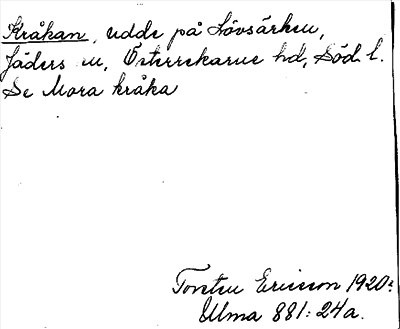 Kråkan, udde på Lövsärken,
Jäders sn, Österrekarne hd, Söd. l.
Se Mora kråka
Torsten Ericsson 1920.
Ulma 881: 24a.